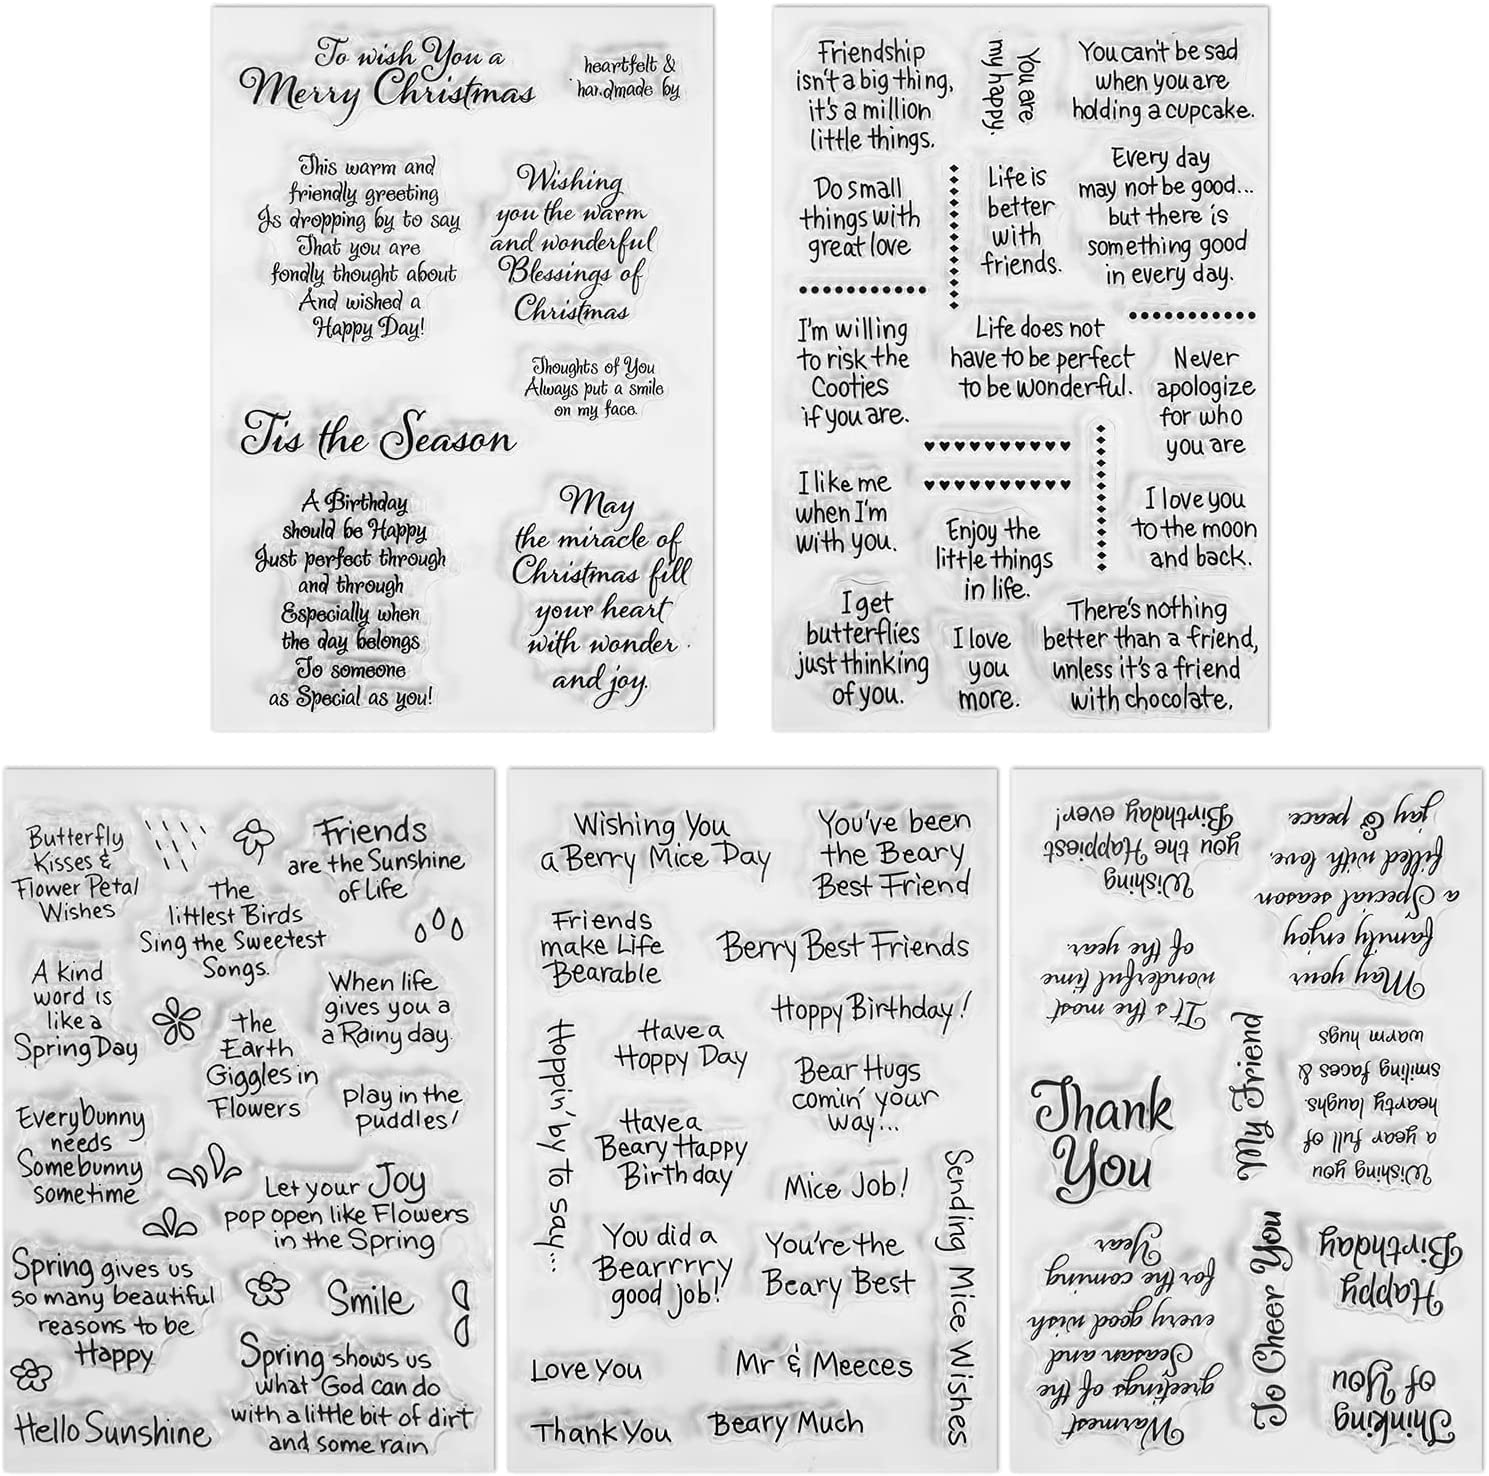 To wish You a
Merry Christmas
heartfelt &
handmade by
This warm and
friendly greeting
Is dropping by to say
That you are
fondly thought about
And wished a
Happy Day!
Wishing
you the warm
and wonderful
Blessings of
Christmas
Thoughts of You
Always put a smile
on my face.
Tis the Season
A Birthday
should be Happy
Just perfect through
and through
Especially when
the day belongs
To someone
as Special as you!
May
the miracle of
Christmas fill
your heart
with wonder
and joy.
Friendship
isn't a big thing,
it's a million
little things.
You are
my happy.
You can't be sad
when you are
holding a cupcake.
Do small
things with
great love
Life is
better
with
friends.
Every day
may not be good...
but there is
something good
in every day.
I'm willing
to risk the
Cooties
if you are.
Life does not
have to be perfect
to be wonderful.
Never
apologize
for who
you are
I like me
when I'm
with you.
Enjoy the
little things
in life.
I love you
to the moon
and back.
I get
butterflies
just thinking
of you.
I love
you
more.
There's nothing
better than a friend,
unless it's a friend
with chocolate.
Butterfly
Kisses &
Flower Petal
Wishes
Friends
are the Sunshine
of Life
The
littlest Birds
Sing the Sweetest
Songs.
A kind
word is
like a
Spring Day
When life
gives you a
a Rainy day
the
Earth
Giggles in
Flowers
play in the
puddles!
Everybunny
needs
Somebunny
sometime
Let your Joy
pop open like Flowers
in the Spring
Spring gives us
so many beautiful
reasons to be
Happy
Smile
Spring shows us
what God can do
with a little bit of dirt
and some rain
Hello Sunshine
Wishing You
a Berry Mice Day
You've been
the Beary
Best Friend
Friends
make Life
Bearable
Berry Best Friends
Hoppy Birthday!
Hoppin' by to say...
Have a
Hoppy Day
Bear Hugs
comin' your
way...
Have a
Beary Happy
Birthday
Mice Job!
Sending Mice Wishes
You did a
Bearrrry
good job!
You're the
Beary Best
Love You
Mr & Meeces
Thank You
Beary Much
Wishing
you the Happiest
Birthday ever!
May your
family enjoy
a Special season
filled with love,
joy & peace.
It's the most
wonderful time
of the year.
My Friend
Wishing you
a year full of
hearty laughs.
smiling faces &
warm hugs
Thank
You
Warmest
greetings of the
Season and
every good wish
for the coming
Year
To Cheer You
Happy
Birthday
Thinking
of You